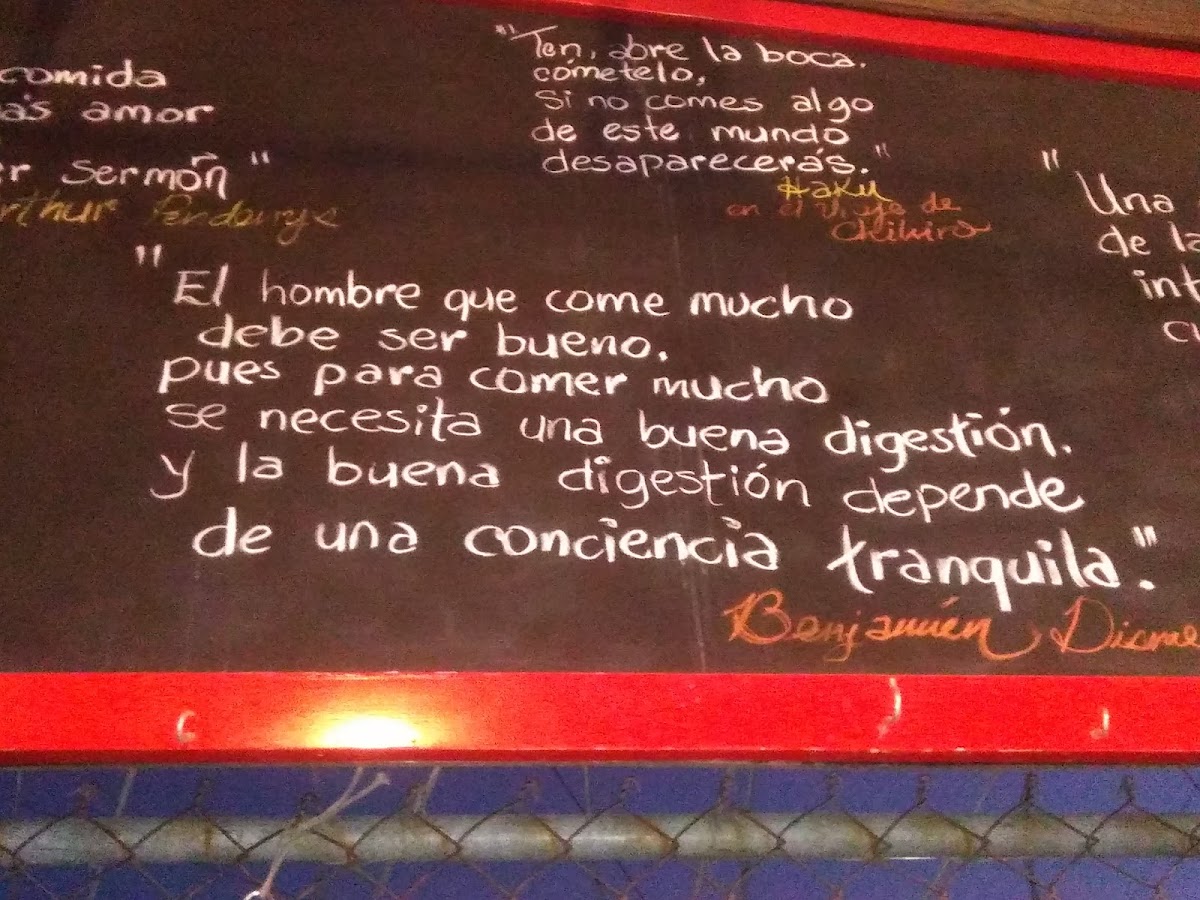 comida
más amor
r sermón"
Arthur Pendourys
"Ten, abre la boca.
cómetelo,
si no comes algo
de este mundo
desaparecerás."
Haku
en el viaje de
Chihiro
"Una
de la
int
cu
"El hombre que come mucho
debe ser bueno,
pues para comer mucho
se necesita una buena digestión.
y la buena digestión depende
de una conciencia tranquila."
Benjamién Disrae